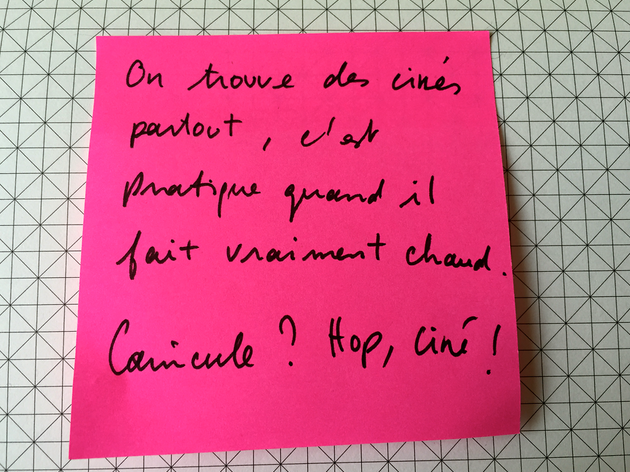 On trouve des cinés
partout, c'est
pratique quand il
fait vraiment chaud.
Canicule ? Hop, ciné !